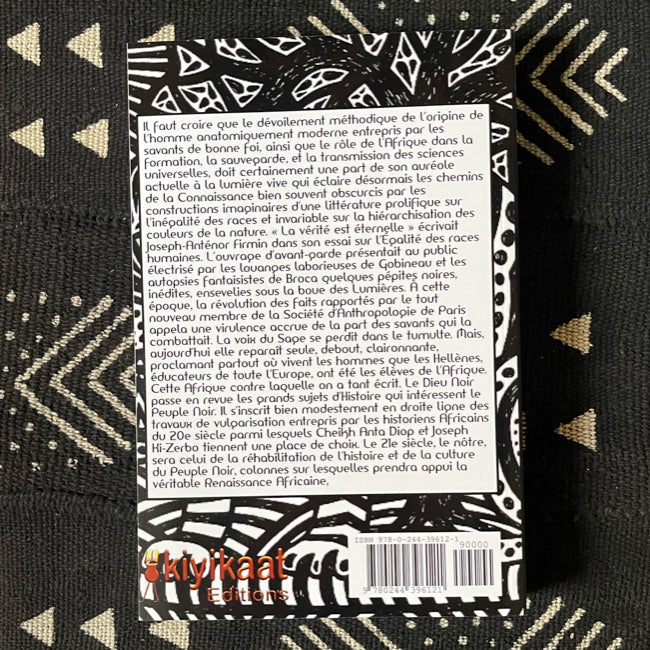 Il faut croire que le dévoilement méthodique de l'origine de
l'homme anatomiquement moderne entrepris par les
savants de bonne foi, ainsi que le rôle de l'Afrique dans la
formation, la sauvegarde, et la transmission des sciences
universelles, doit certainement une part de son auréole
actuelle à la lumière vive qui éclaire désormais les chemins
de la Connaissance bien souvent obscurcis par les
constructions imaginaires d'une littérature prolifique sur
l'inégalité des races et invariable sur la hiérarchisation des
couleurs de la nature. « La vérité est éternelle » écrivait
Joseph-Anténor Firmin dans son essai sur l'Égalité des races
humaines. L'ouvrage d'avant-garde présentait au public
électrisé par les louanges laborieuses de Gobineau et les
autopsies fantaisistes de Broca quelques pépites noires,
inédites, ensevelies sous la boue des Lumières. À cette
époque, la révolution des faits rapportés par le tout
nouveau membre de la Société d'Anthropologie de Paris
appela une virulence accrue de la part des savants qui la
combattait. La voix du Sage se perdit dans le tumulte. Mais,
aujourd'hui elle reparait seule, debout, claironnante,
proclamant partout où vivent les hommes que les Hellènes,
éducateurs de toute l'Europe, ont été les élèves de l'Afrique.
Cette Afrique contre laquelle on a tant écrit. Le Dieu Noir
passe en revue les grands sujets d'Histoire qui intéressent le
Peuple Noir. Il s'inscrit bien modestement en droite ligne des
travaux de vulgarisation entrepris par les historiens Africains
du 20e siècle parmi lesquels Cheikh Anta Diop et Joseph
Ki-Zerbo tiennent une place de choix. Le 21e siècle, le nôtre,
sera celui de la réhabilitation de l'histoire et de la culture
du Peuple Noir, colonnes sur lesquelles prendra appui la
véritable Renaissance Africaine.
kiyikaat
Editions
ISBN 978-0-244-39612-1
90000
9 780244 396121